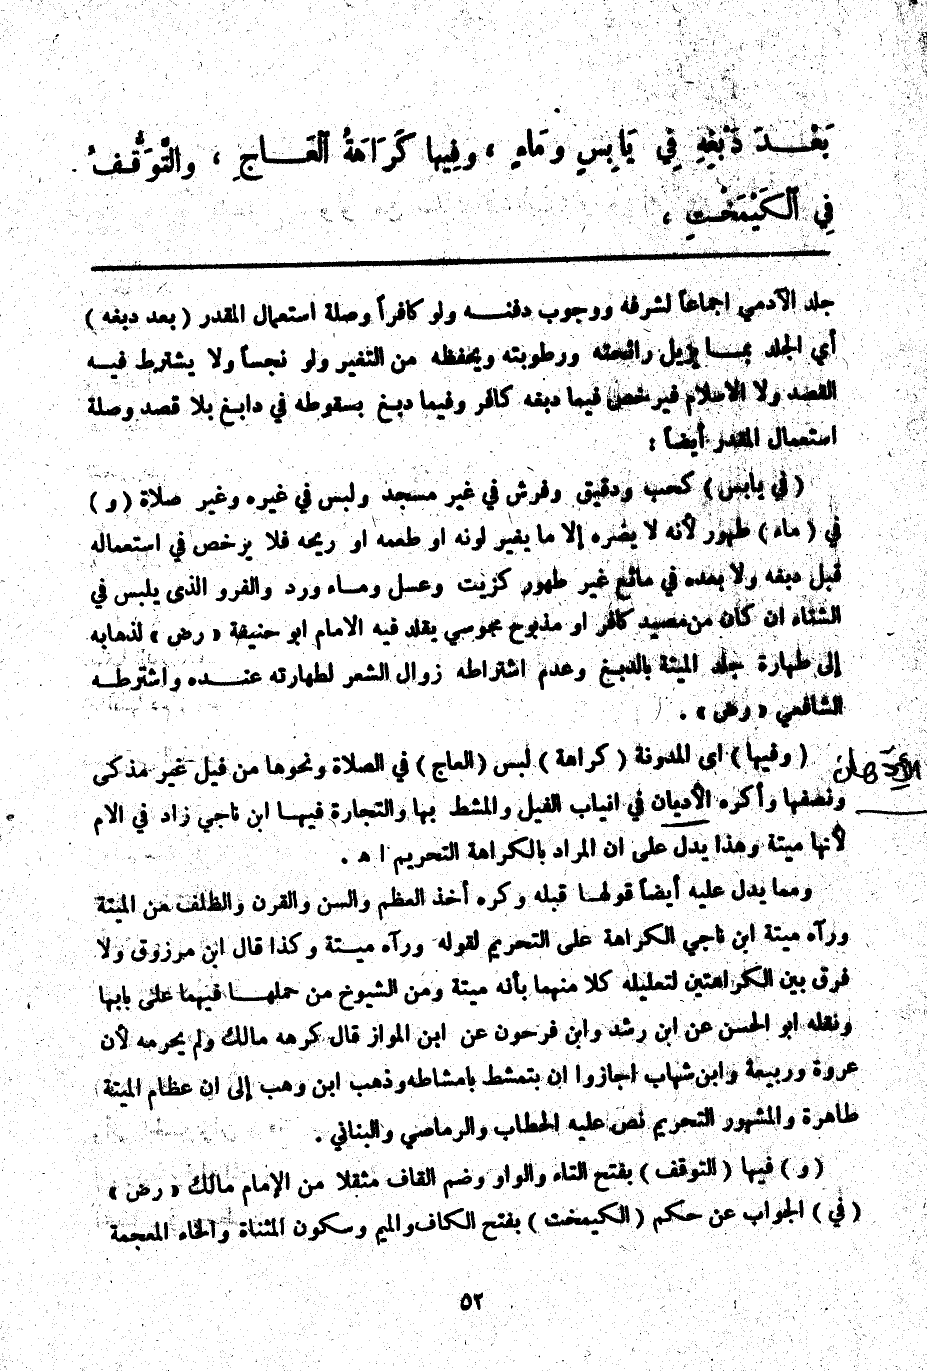 بَعْـــدَ دَبْغِهِ فِي يَابِسٍ وَمَاءٍ ، وفِيها كَرَاهَةُ ٱلْعَـــاجِ ، والتَّوَقُّـفُ
فِي ٱلْكَيْمَخْـتِ ،
جلد الآدمي اجماعاً لشرفه ووجوب دفنـــه ولو كافراً وصلة استعمال المقدر ( بعد دبغه )
أي الجلد بمــا يزيل رائحته ورطوبته ويحفظه من التغير ولو نجساً ولا يشترط فيــه
القصد ولا الاسلام فيرخص فيما دبغه كافر وفيما دبـغ بسقوطه في دابـغ بلا قصد وصلة
استعمال المقدر أيضاً :
( في يابس ) كحب ودقيق وفرش في غير مسجد ولبس في غيره وغير صلاة ( و )
في ( ماء ) طهور لأنه لا يضره إلا ما يغير لونه او طعمه او ريحه فلا يرخص في استعماله
قبل دبغه ولا بعده في مائع غير طهور كزيت وعسل ومــاء ورد والفرو الذى يلبس في
الشتاء ان كان من مصيد كافر او مذبوح مجوسي يقلد فيه الامام ابو حنيفة « رض » لذهابه
إلى طهارة جلد الميتة بالدبـغ وعدم اشتراطه زوال الشعر لطهارته عنـــده واشترطــه
الشافعي « رض » .
( وفيها ) اى المدونة ( كراهة ) لبس ( العاج ) في الصلاة ونحوها من فيل غير مذكى
الأدهان
ونصفها وأكره الأديان في انياب الفيل والمشط بها والتجارة فيهــا ابن ناجي زاد في الام
لأنها ميتة وهذا يدل على ان المراد بالكراهة التحريم ا ه .
ومما يدل عليه أيضاً قولهــا قبله وكره أخذ العظم والسن والقرن والظلف من الميتة
ورآه ميتة ابن ناجي الكراهة على التحريم لقوله ورآه ميــتة وكذا قال ابن مرزوق ولا
فرق بين الكراهتين لتعليله كلا منهما بأنه ميتة ومن الشيوخ من حملهـــا فيهما على بابها
ونقله ابو الحسن عن ابن رشد وابن فرحون عن ابن المواز قال كرهه مالك ولم يحرمه لأن
عروة وربيعة وابن شهاب اجازوا ان بتمشط بامشاطه وذهب ابن وهب إلى ان عظام الميتة
طاهرة والمشهور التحريم نص عليه الحطاب والرماصي والبناني .
( و ) فيها ( التوقف ) بفتح التاء والواو وضم القاف مثقلا من الإمام مالك « رض »
( في ) الجواب عن حكم ( الكيمخت ) بفتح الكاف والميم وسكون المثناة والخاء المعجمة
٥٢